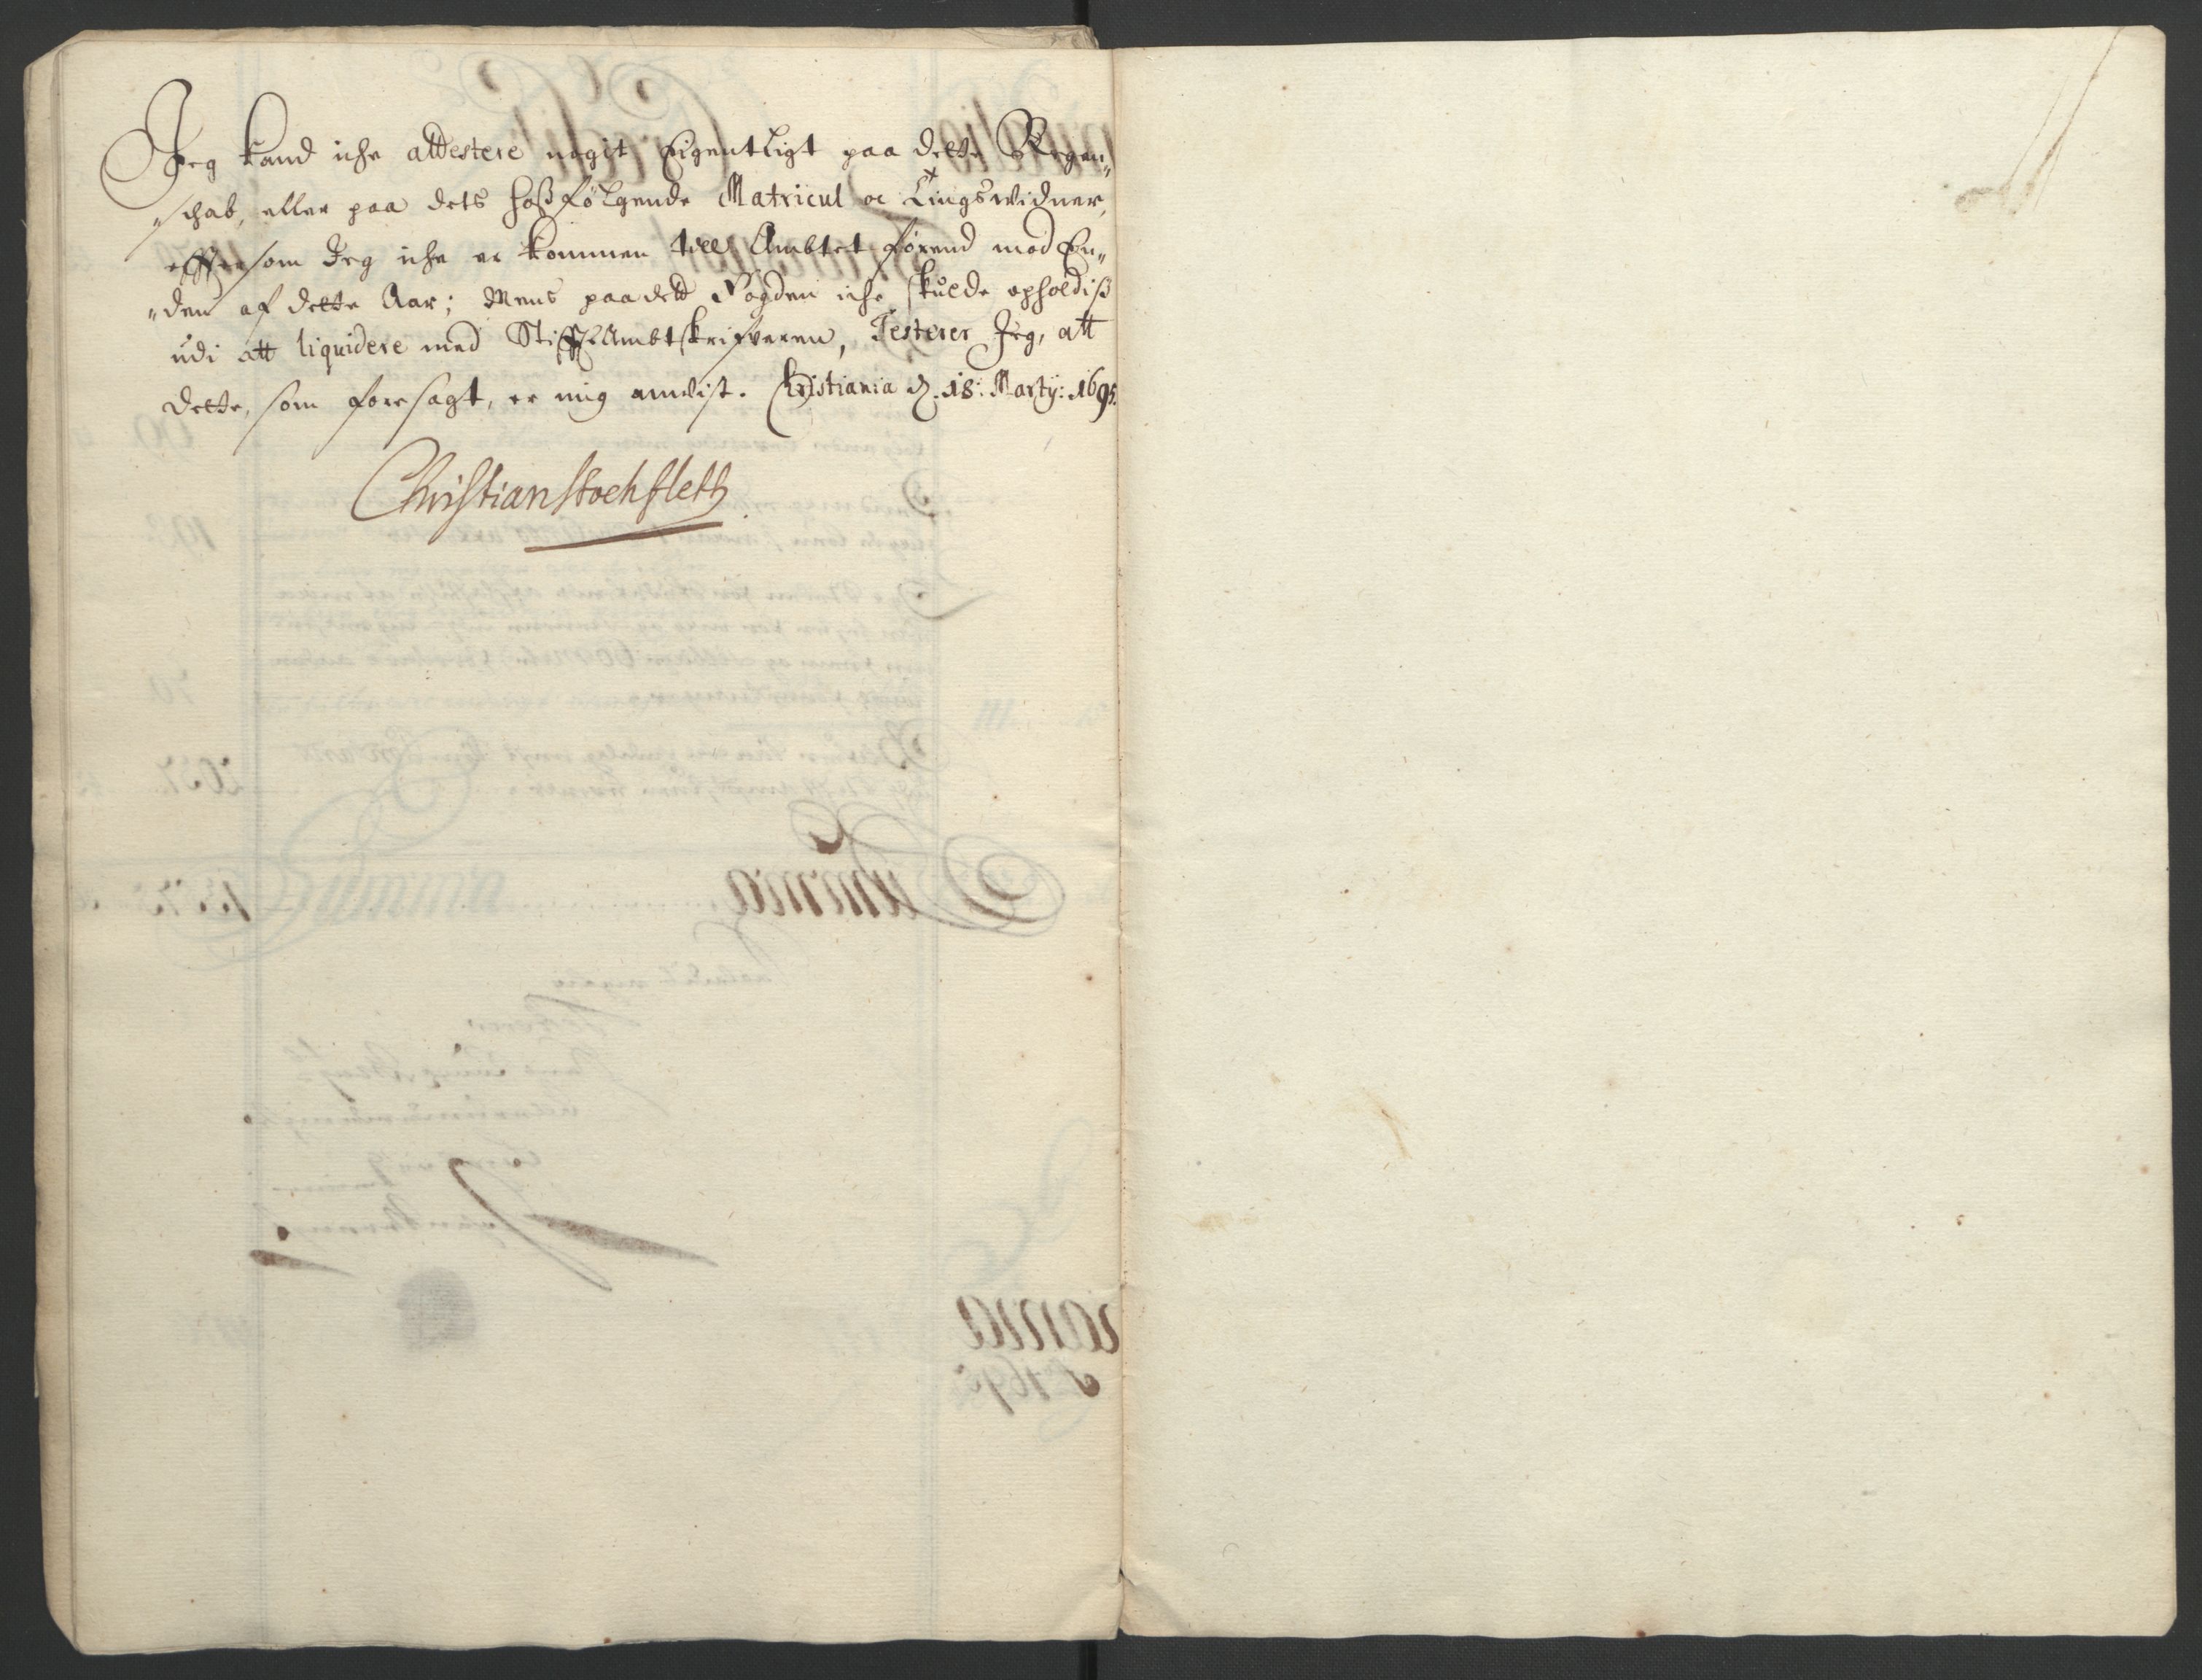 Jeg kand iche attestere nogit Eigentligt paa dette Regen„
„schab, eller paa dets hoßfølgende Matricul oc Tingswidner,
efftersom Jeg iche er kommen till Ambtet førend mod En„
„den af dette Aar; Mens paa det Fogden iche skulde opholdiß
udi att liquidere med StifftAmbtskrifveren, Testerer Jeg, att
dette, som foresagt, er mig anvist. Christiania d. 18. Marty: 1695.
Christian Stockfleth